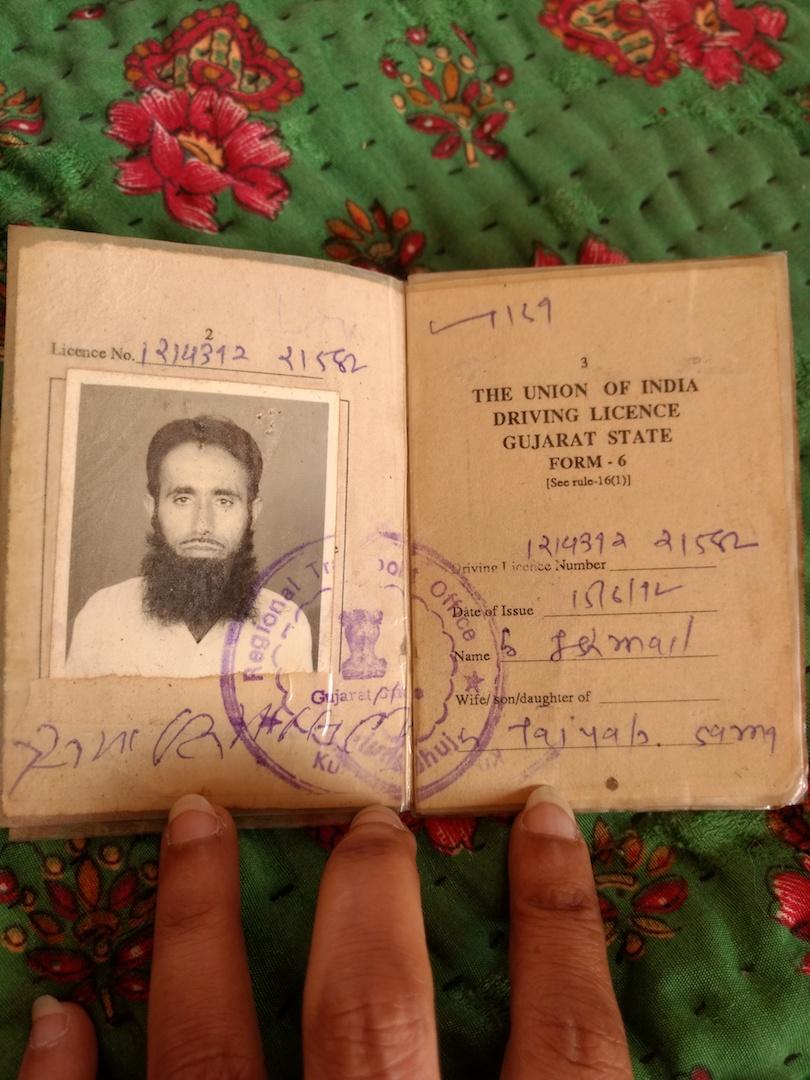 2
Licence No. 1214392 21582
3
THE UNION OF INDIA
DRIVING LICENCE
GUJARAT STATE
FORM - 6
[See rule-16(1)]
1214392 21582
Driving Licence Number
Date of Issue 15/6/92
Name Ishmail
Wife/son/daughter of
Taiyab. sama
Regional Transport Office
Gujarat
Bhuj